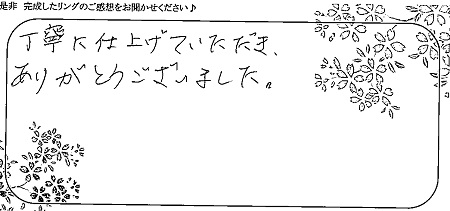 是非 完成したリングのご感想をお聞かせください♪
丁寧に仕上げていただき、
ありがとうございました。